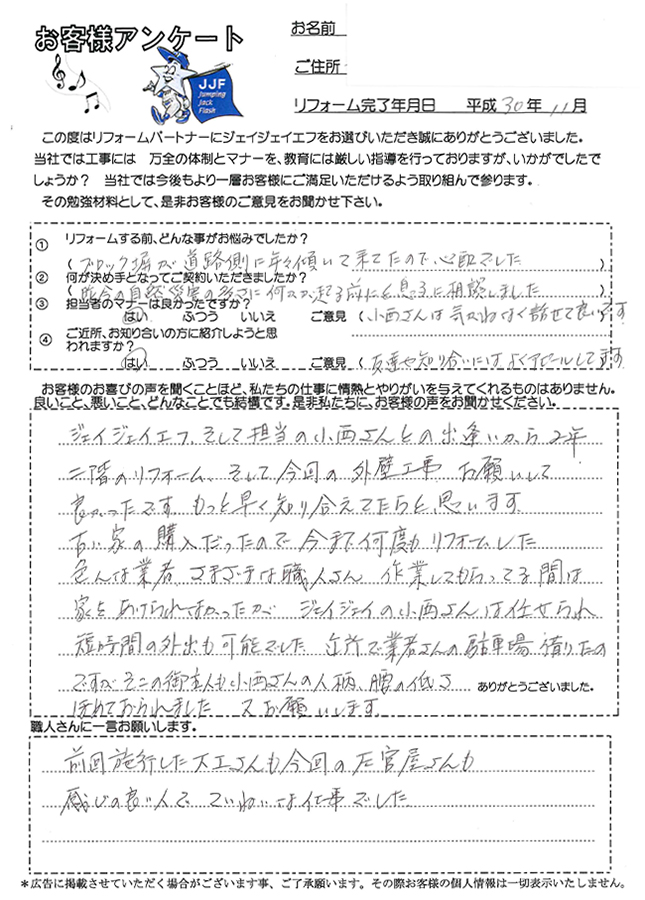 お客様アンケート
JJF
Jumping
Jack
Flash
お名前
ご住所
リフォーム完了年月日 平成 30 年 11 月
この度はリフォームパートナーにジェイジェイエフをお選びいただき誠にありがとうございました。
当社では工事には 万全の体制とマナーを、教育には厳しい指導を行っておりますが、いかがでしたで
しょうか? 当社では今後もより一層お客様にご満足いただけるよう取り組んで参ります。
その勉強材料として、是非お客様のご意見をお聞かせ下さい。
① リフォームする前、どんな事がお悩みでしたか?
(ブロック塀が道路側に年々傾いて来てたので、心配でした)
② 何が決め手となってご契約いただきましたか?
(昨今の自然災害の多さに何か起る前にと息子に相談しました)
③ 担当者のマナーは良かったですか?
はい ふつう いいえ ご意見 (小西さんは気かねなく話せて良いです
④ ご近所、お知り合いの方に紹介しようと思
われますか?
はい ふつう いいえ ご意見 (友達や知り合いにはよくアピールしてます
お客様のお喜びの声を聞くことほど、私たちの仕事に情熱とやりがいを与えてくれるものはありません。
良いこと、悪いこと、どんなことでも結構です。是非私たちに、お客様の声をお聞かせください。
ジェイジェイエフ、そして担当の小西さんとの出逢いから2年
二階のリフォーム、そして今回の外壁工事 お願いして
良かったです もっと早く知り合えてたらと、思います
古い家の購入だったので 今まで何度か リフォームした
色んな業者、さまざまな職人さん 作業してもらってる間は
家をあけられなかったが ジェイジェイの小西さんは任せられ
短時間の外出も可能でした 近所で業者さんの駐車場 借りたの
ですが そこの御主人も小西さんの人柄、腰の低さ
ほめておられました 又お願いします
ありがとうございました。
職人さんに一言お願いします。
前回施行した大工さんも今回の左官屋さんも
感じの良い人で ていねいな仕事でした
*広告に掲載させていただく場合がございます事、ご了承願います。その際お客様の個人情報は一切表示いたしません。